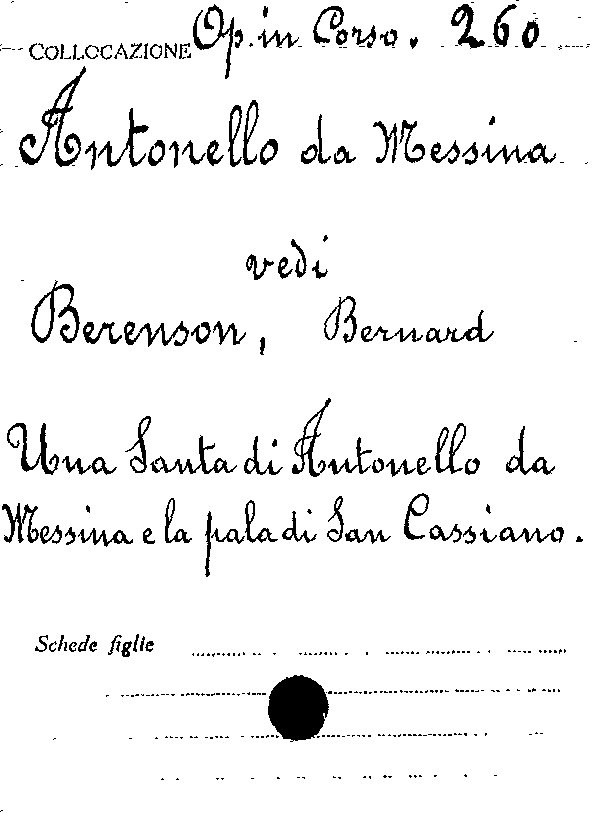 COLLOCAZIONE Op. in Corso. 260
Antonello da Messina
vedi
Berenson, Bernard
Una Santa di Antonello da
Messina e la pala di San Cassiano.
Schede figlie